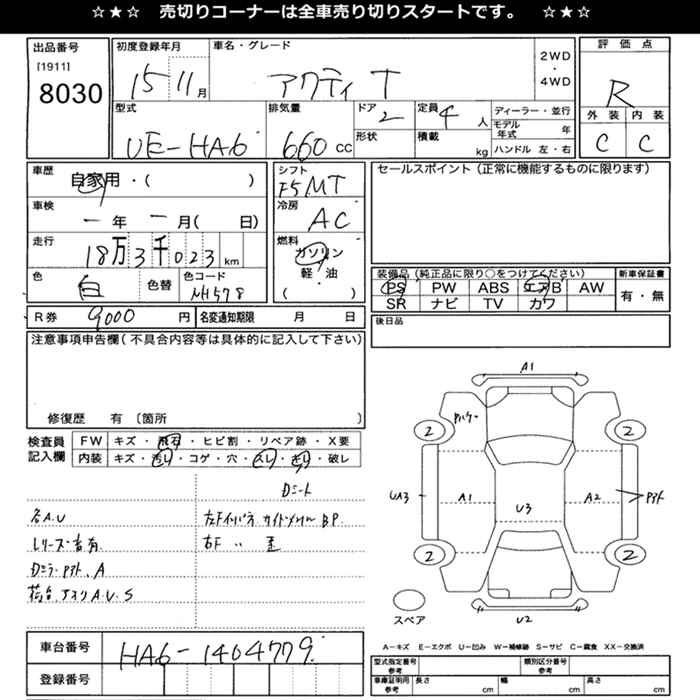 ☆ ★ ☆ 売切りコーナーは全車売り切りスタートです。 ☆ ★ ☆
出品番号
[1911]
8030
初度登録年月
15 11 月
車名・グレード
アクティ T
2WD
・
4WD
評価点
R
外装 内装
C C
型式
UE-HA6
排気量
660 cc
ドア
2
形状
定員
4 人
積載
kg
ディーラー・並行
モデル年式 年
ハンドル 左・右
車歴
自家用・( )
車検
一 年 一 月( 日)
走行
18万3千023 km
色
白
色替
色コード
NH578
シフト
F5MT
冷房
AC
燃料
ガソリン
軽・油
( )
セールスポイント(正常に機能するものに限ります)
装備品(純正品に限り○をつけてください)
新車保証書
PS PW ABS エアB AW
SR ナビ TV カワ
有・無
R券 9000 円
名変通知期限 月 日
後日品
注意事項申告欄(不具合内容等は具体的に記入して下さい)
修復歴 有〔箇所 〕
検査員
記入欄
FW キズ・飛石・ヒビ割・リペア跡・X要
内装 キズ・汚れ・コゲ・穴・スレ・キレ・破レ
Dシート
各A.U
左Fインパネ サイドメンバー BP
右F 〃 歪
荷台 A.U.S
A1
2 2
UA3 A1 U3 A2
2 2
U2
スペア
A－キズ E－エクボ U－凹み W－補修跡 S－サビ C－腐食 XX－交換済
車台番号
HA6-1404779
登録番号
型式指定番号
参考
類別区分番号
参考
車庫証明用
参考
長さ cm
幅 cm
高さ cm